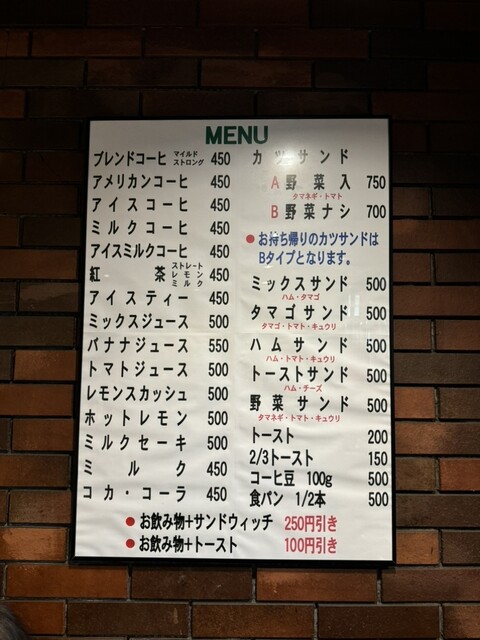 MENU
ブレンドコーヒ マイルド ストロング 450
アメリカンコーヒ 450
アイスコーヒ 450
ミルクコーヒ 450
アイスミルクコーヒ 450
紅茶 ストレート レモン ミルク 450
アイスティー 450
ミックスジュース 500
バナナジュース 550
トマトジュース 500
レモンスカッシュ 500
ホットレモン 500
ミルクセーキ 500
ミルク 450
コカ・コーラ 450
カツサンド
A 野菜入 750
タマネギ・トマト
B 野菜ナシ 700
● お持ち帰りのカツサンドは
Bタイプとなります。
ミックスサンド 500
ハム・タマゴ
タマゴサンド 500
タマゴ・トマト・キュウリ
ハムサンド 500
ハム・トマト・キュウリ
トーストサンド 500
ハム・チーズ
野菜サンド 500
タマネギ・トマト・キュウリ
トースト 200
2/3トースト 150
コーヒ豆 100g 500
食パン 1/2本 500
● お飲み物+サンドウィッチ 250円引き
● お飲み物+トースト 100円引き